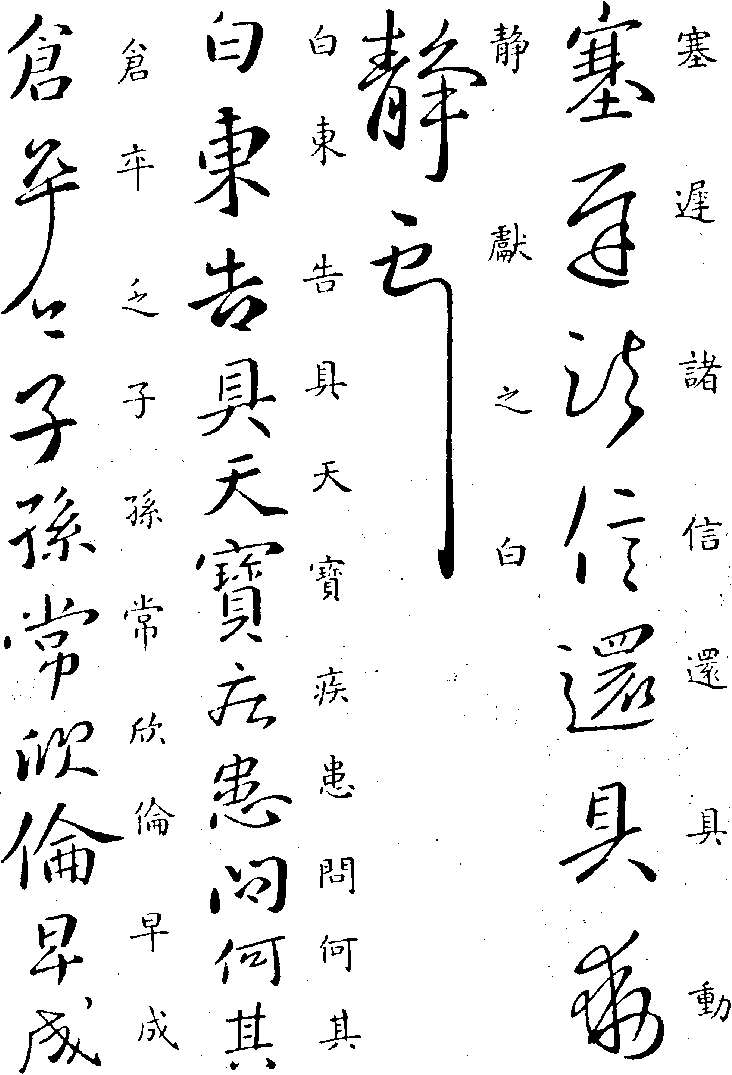 塞遲諸信還具動
塞遲諸信還具動
静獻之白
静
白東告具天寶疾患問何其
白東告具天寶疾患問何其
倉卒乏子孫常欣倫早成
倉卒乏子孫常欣倫早成